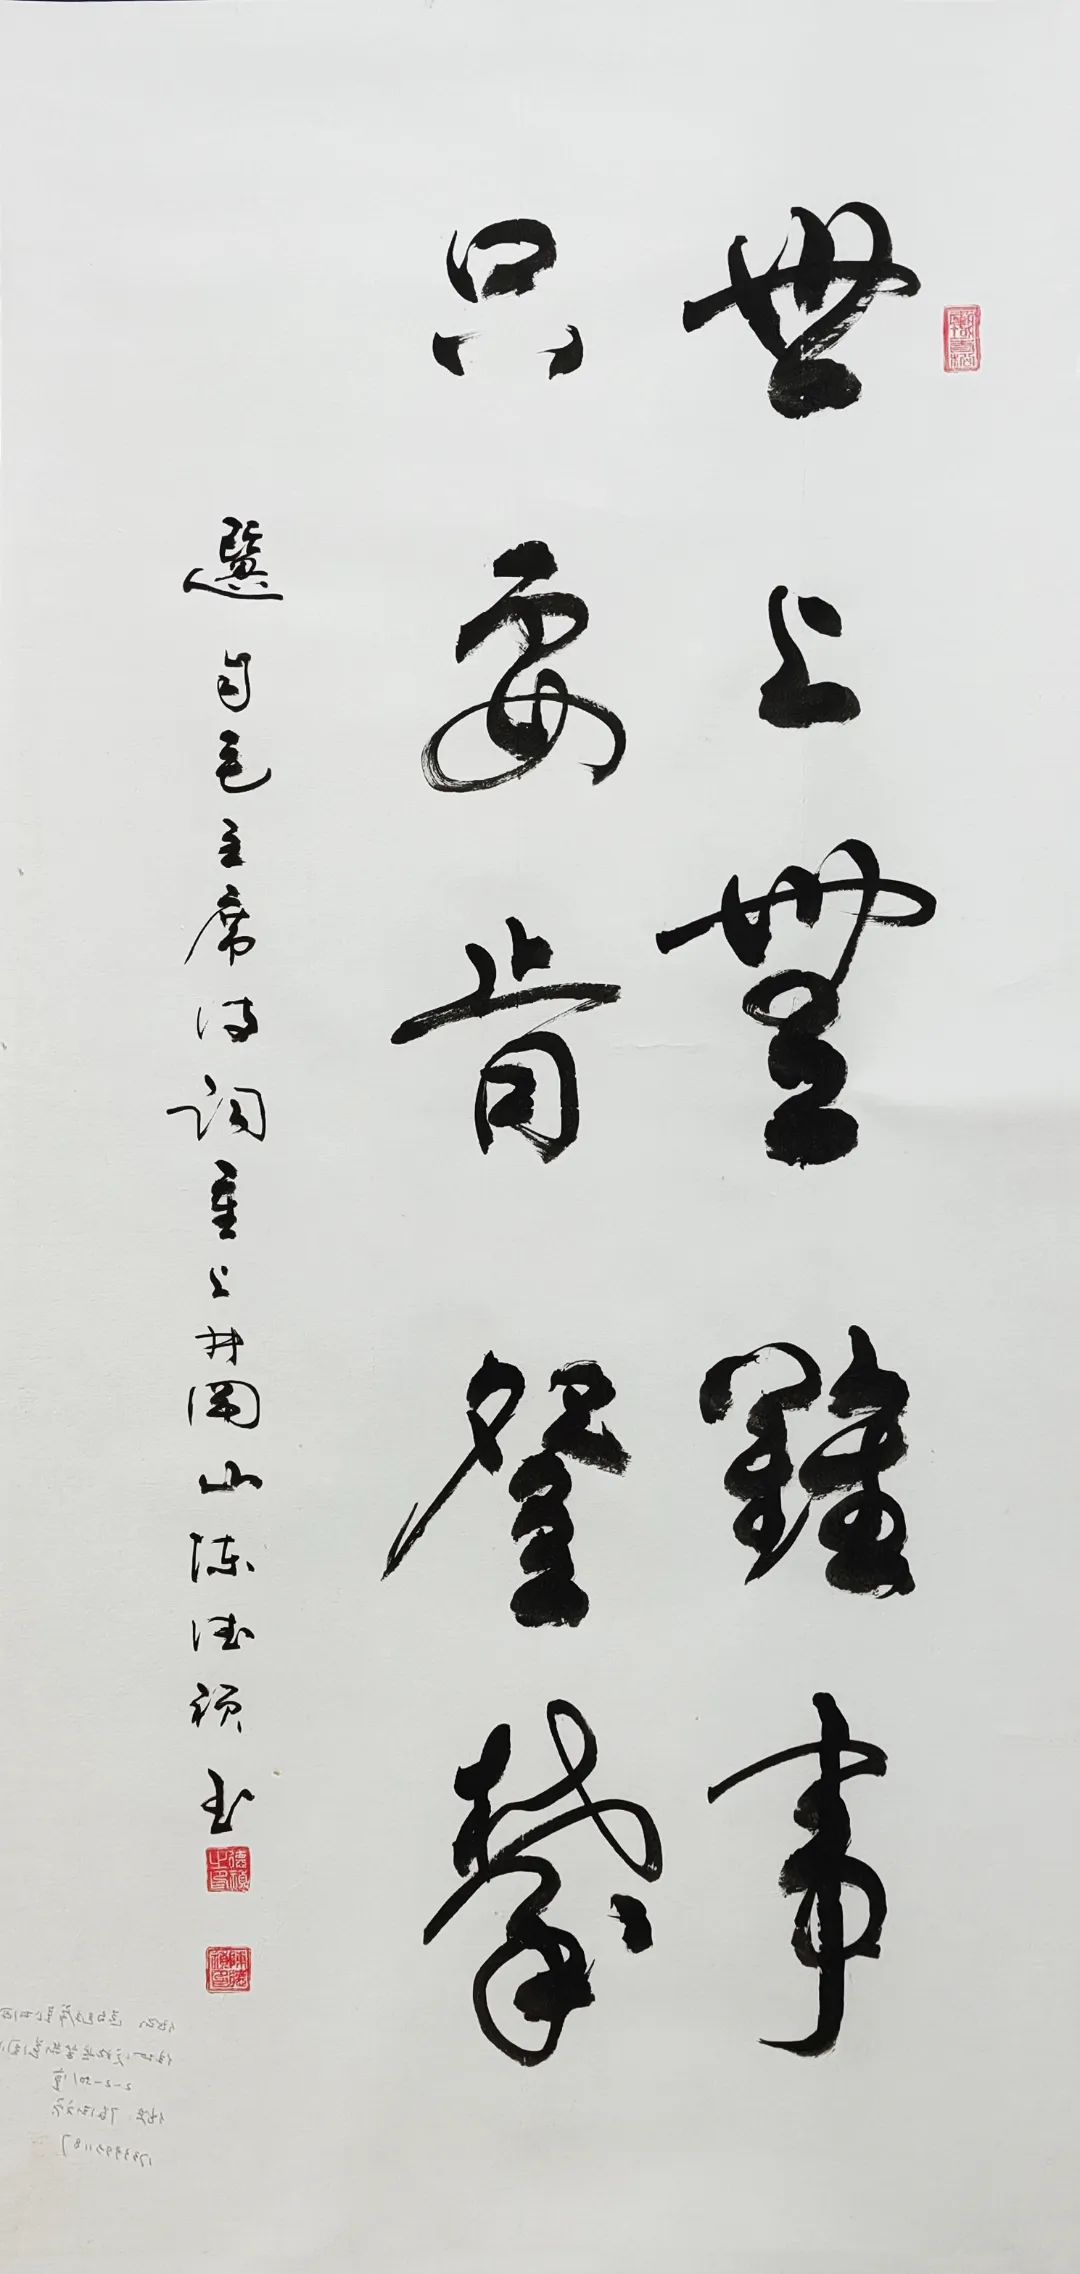 世上無難事
只要肯登攀
選自毛主席詩詞重上井岡山陈德祯書
德禎之印